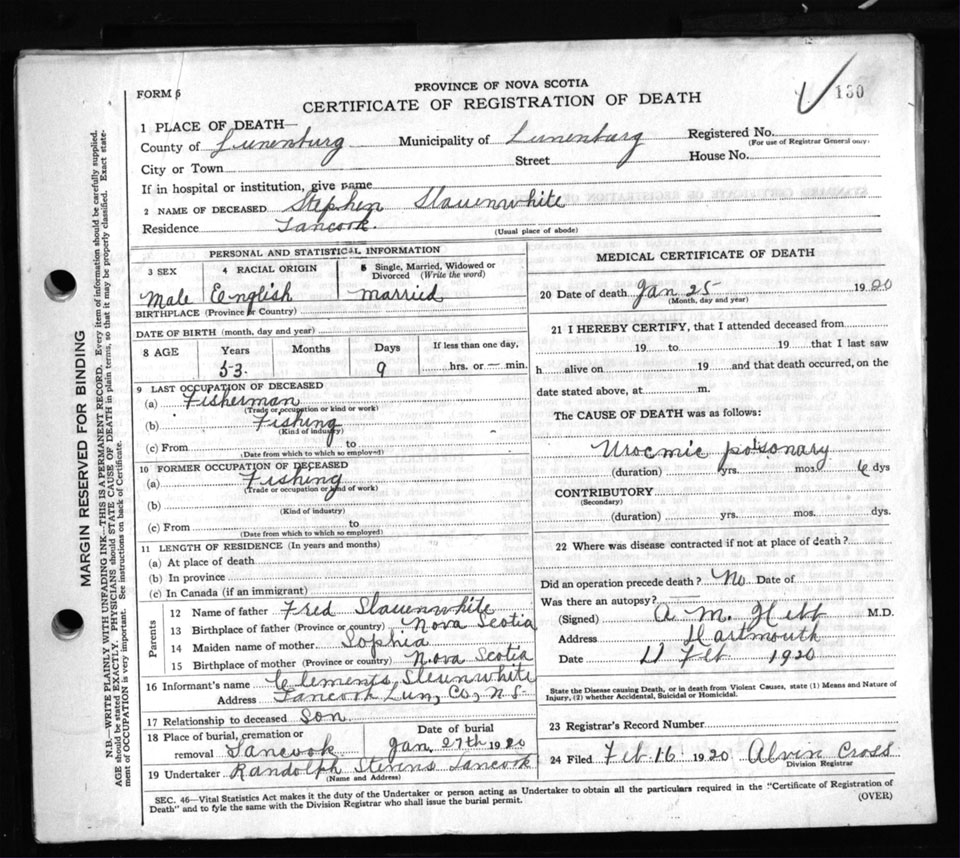 130
FORM 6
PROVINCE OF NOVA SCOTIA
CERTIFICATE OF REGISTRATION OF DEATH
1 PLACE OF DEATH—
County of Lunenburg Municipality of Lunenburg Registered No.
(For use of Registrar General only)
City or Town Street House No.
If in hospital or institution, give name
2 NAME OF DECEASED Stephen Slauenwhite
Residence Tancook.
(Usual place of abode)
PERSONAL AND STATISTICAL INFORMATION
3 SEX 4 RACIAL ORIGIN 5 Single, Married, Widowed or Divorced (Write the word)
Male English married
BIRTHPLACE (Province or Country)
DATE OF BIRTH (month, day and year)
8 AGE Years Months Days If less than one day,
53. 9 hrs. or — min.
9 LAST OCCUPATION OF DECEASED
(a) Fisherman
(Trade or occupation or kind or work)
(b) Fishing
(Kind of industry)
(c) From to
(Date from which to which so employed)
10 FORMER OCCUPATION OF DECEASED
(a) Fishing
(Trade or occupation or kind of work)
(b)
(Kind of industry)
(c) From to
(Date from which to which so employed)
11 LENGTH OF RESIDENCE (In years and months)
(a) At place of death
(b) In province
(c) In Canada (if an immigrant)
Parents
12 Name of father Fred Slauenwhite
13 Birthplace of father (Province or country) Nova Scotia
14 Maiden name of mother Sophia
15 Birthplace of mother (Province or country) Nova Scotia
16 Informant's name Clements Sleunwhite
Address Tancook Lun, Co, N S
17 Relationship to deceased Son
18 Place of burial, cremation or removal Tancook Date of burial Jan, 27th 1920
19 Undertaker Randolph Stevens Tancook
(Name and Address)
MEDICAL CERTIFICATE OF DEATH
20 Date of death Jan 25 1920
(Month, day and year)
21 I HEREBY CERTIFY, that I attended deceased from
19 to 19 that I last saw
h alive on 19 and that death occurred, on the
date stated above, at m.
The CAUSE OF DEATH was as follows:
Urocmic poisonary
(duration) yrs. mos. 6 dys
CONTRIBUTORY
(Secondary)
(duration) yrs. mos. dys.
22 Where was disease contracted if not at place of death?
Did an operation precede death? No Date of
Was there an autopsy?
(Signed) A M. Hebb M.D.
Address Dartmouth
Date 11 Feb 1920
State the Disease causing Death, or in death from Violent Causes, state (1) Means and Nature of
Injury, (2) whether Accidental, Suicidal or Homicidal.
23 Registrar's Record Number
24 Filed Feb 16 1920 Alvin Cross
Division Registrar
SEC. 46—Vital Statistics Act makes it the duty of the Undertaker or person acting as Undertaker to obtain all the particulars required in the "Certificate of Registration of
Death" and to fyle the same with the Division Registrar who shall issue the burial permit.
(OVER)
MARGIN RESERVED FOR BINDING
N.B.—WRITE PLAINLY WITH UNFADING INK—THIS IS A PERMANENT RECORD. Every item of information should be carefully supplied.
AGE should be stated EXACTLY. PHYSICIANS should STATE CAUSE OF DEATH in plain terms, so that it may be properly classified. Exact state-
ment of OCCUPATION is very important. See instructions on back of Certificate.